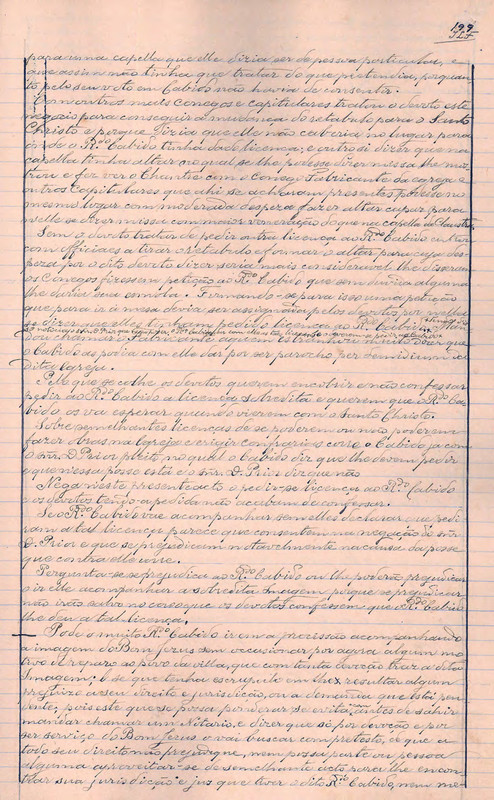 199
para uma capella que elle dizia ser de pessoa particular, e
que assim não tinha que tratar do que pretendia, porquan-
to pelo seu voto em Cabido não havia de consentir.
Com outros mais Conegos e capitulares tratou o devoto este
negocio para conseguir a mudança do retabulo para o Santo
Christo e porque dizia que elle não caberia no lugar para
onde o Rdo Cabido tinha dado licença; e outro si dizer que na
capella tinha altar no qual se lhe podesse dizer missa lhe mos-
trou e fez ver o Chantre com o Conego Fabricante da egreja e
outros Capitulares que ahi se acharam presentes
mesmo lugar com moderada despeza fazer altar capaz para
n'elle se dizer missa com maior veneração do que na capella da Claustra
Sem o devoto tratar de pedir outra licença ao Rdo Cabido entrou
com officiaes a tirar o retabulo e formar o altar para cuja des-
peza por o dito devoto dizer seria mais consideravel lhe disseram
os Conegos fizessem petição ao Rdo Cabido que sem duvida alguma
lhe daria sua esmola. Firmando-se para isso uma petição
que para ir á mesa devia ser assignada pelos devotos por n'ella
se dizer que elles tinham pedido licença ao Rdo Cabido
dou chamar o Fabricante a quem estranhou muito dizer que
o Cabido as podia com elle dar por ser parocho per
dita Egreja.
Pelo que se colhe os devotos querem encobrir e não confessar
pedir ao Rdo Cabido a licença sobredita e querem que o Rdo Ca-
bido os vá esperar quando vierem com o Santo Christo.
Sobre semelhantes licenças de se poderem ou não poderem
fazer obras na Egreja e erigir confrarias corre o Cabido já com
o snr. D. Prior pleito no qual o Cabido diz que lhe devem pedir
e que n'essa posse está e o snr. D. Prior diz que não
Nega n'este presente acto o pedir-se licença ao Rdo Cabido
os devotos tendo-a pedida não acabam de confessar.
Se o Rdo Cabido vae acompanhar sem elles declarar que pedi-
ram a tal licença parece que consentem na negação do snr.
D. Prior e que se prejudicam notavelmente na causa da posse
que contra elle corre.
Pergunta-se se prejudica ao Rdo Cabido ou lhe poderão prejudicar
o ir elle acompanhar a sobredita Imagem, porque se prejudicar
não irão salvo no caso que os devotos confessem que o Rdo Cabido
lhe deu a tal licença.
Pode o muito Rdo Cabido ir em a procissão acompanhando
a imagem do Bom Jesus sem occasionar por agora algum mo-
tivo de reparo ao povo da villa, que com tanta devoção traz a dita
Imagem; e se que tenha escrupulo em lhe resultar algum
prejuizo a seu direito e jurisdicção, ou a demanda que está pen-
dente; pois este que se possa ponderar se evita antes de sahir
mandar chamar um Notario, e dizer que só por devoção e por
ser serviço do Bom Jesus o vai buscar com protesto, e que a
todo seu direito não prejudique, nem possa parte ou pessoa
alguma aproveitar-se de semelhante acto para lhe encon-
trar sua jurisdicção e jus que tiver o dito Rdo Cabido, nem me-